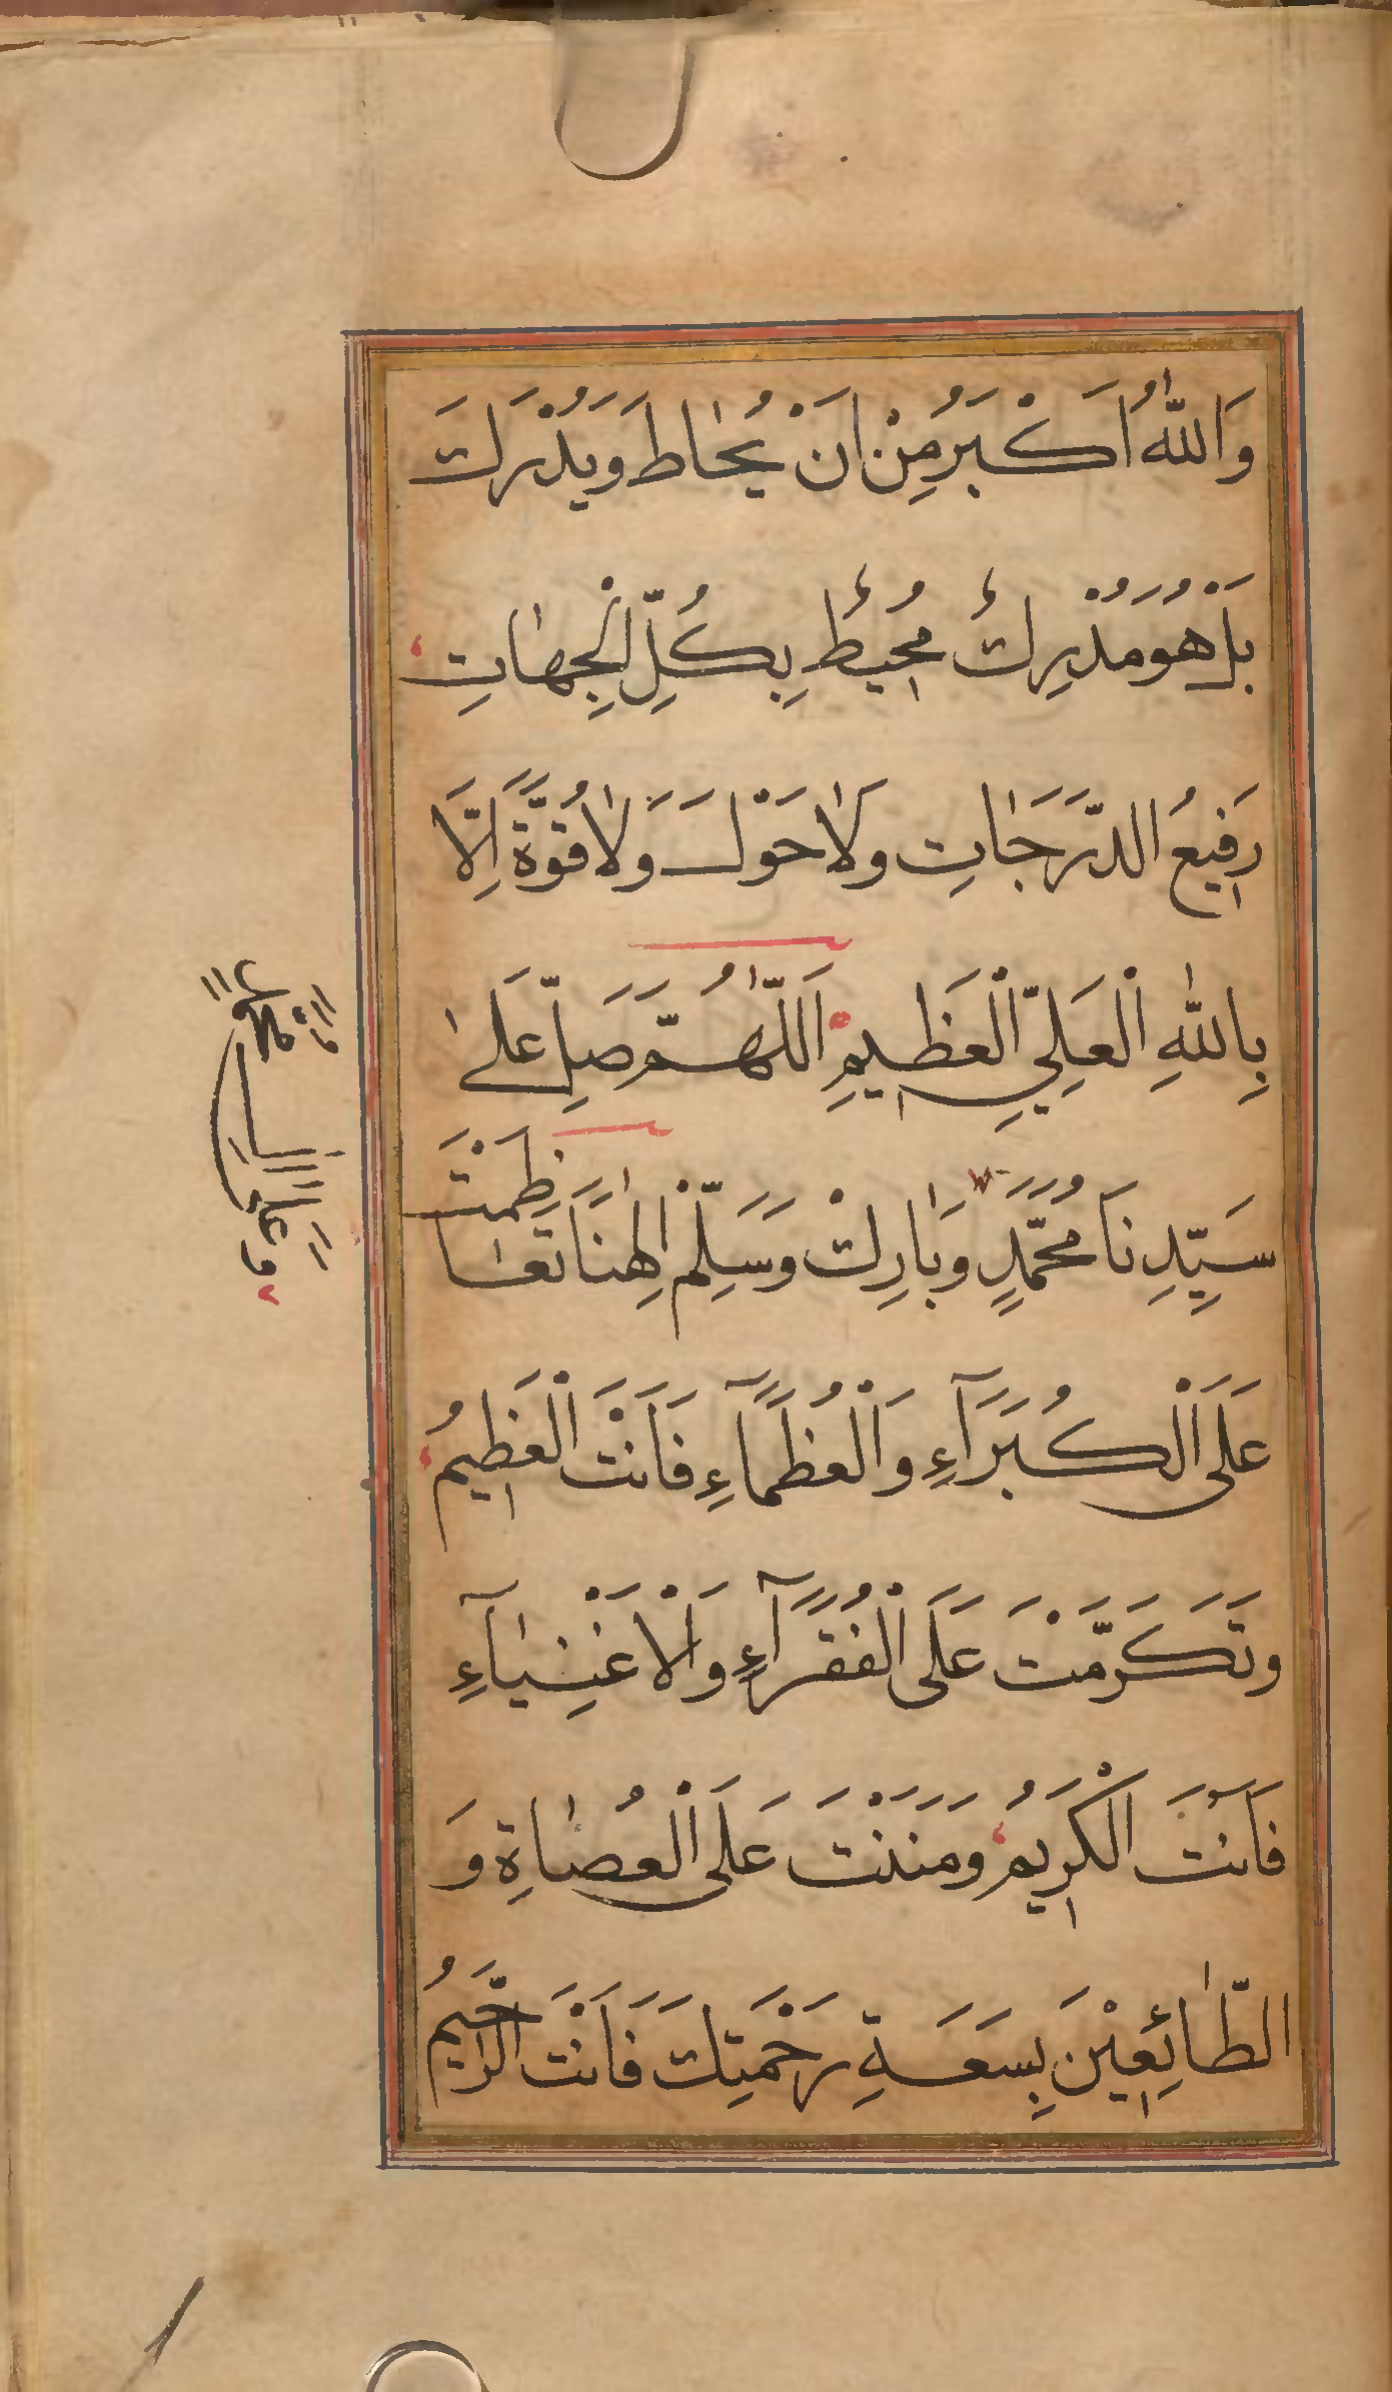 وَاللّٰهُ اَكْبَرُ مِنْ اَنْ يُحَاطَ وَيُدْرَكَ
بَلْ هُوَ مُدْرِكٌ مُحِيطٌ بِكُلِّ الْجِهَاتِ
رَفِيعُ الدَّرَجَاتِ وَلَا حَوْلَ وَلَا قُوَّةَ اِلَّا
بِاللّٰهِ الْعَلِيِّ الْعَظِيمِ اَللّٰهُمَّ صَلِّ عَلىٰ
سَيِّدِنَا مُحَمَّدٍ وَبَارِكْ وَسَلِّمْ اِلٰهَنَا تَعَاظَمْتَ
عَلَى الْكُبَرَآءِ وَالْعُظَمَآءِ فَاَنْتَ الْعَظِيمُ
وَتَكَرَّمْتَ عَلَى الْفُقَرَآءِ وَالْاَغْنِيَآءِ
فَاَنْتَ الْكَرِيمُ وَمَنَنْتَ عَلَى الْعُصَاةِ وَ
الطَّائِعِيْنَ بِسَعَةِ رَحْمَتِكَ فَاَنْتَ الرَّحِيمُ
وَعَلىٰ اٰلِ مُحَمَّدٍ